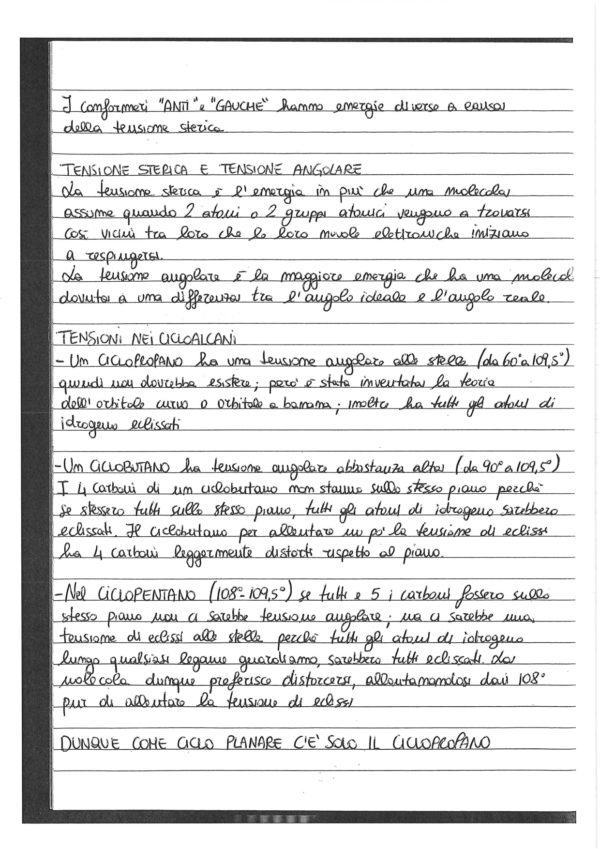 I conformeri "ANTI" e "GAUCHE" hanno energie diverse a causa
della tensione sterica
TENSIONE STERICA E TENSIONE ANGOLARE
La tensione sterica è l'energia in più che una molecola
assume quando 2 atomi o 2 gruppi atomici vengono a trovarsi
così vicini tra loro che le loro nuvole elettroniche iniziano
a respingersi.
La tensione angolare è la maggiore energia che ha una molecol
dovuta a una differenza tra l'angolo ideale e l'angolo reale.
TENSIONI NEI CICLOALCANI
- Un CICLOPROPANO ha una tensione angolare alle stelle (da 60° a 109,5°)
quindi non dovrebbe esistere; però è stata inventata la teoria
dell'orbitale curvo o orbitale a banana; inoltre ha tutti gli atomi di
idrogeno eclissati
- Un CICLOBUTANO ha tensione angolare abbastanza alta (da 90° a 109,5°)
I 4 carboni di un ciclobutano non stanno sullo stesso piano perché
se stessero tutti sullo stesso piano, tutti gli atomi di idrogeno sarebbero
eclissati. Il ciclobutano per allentare un po' la tensione di eclissi
ha 4 carboni leggermente distorti rispetto al piano.
- Nel CICLOPENTANO (108°-109,5°) se tutti e 5 i carboni fossero sullo
stesso piano non ci sarebbe tensione angolare; ma ci sarebbe una
tensione di eclissi alle stelle perché tutti gli atomi di idrogeno
lungo qualsiasi legame guardiamo, sarebbero tutti eclissati. La
molecola dunque preferisce distorcersi, allontanandosi dai 108°
pur di allentare la tensione di eclissi
DUNQUE COME CICLO PLANARE C'È SOLO IL CICLOPROPANO